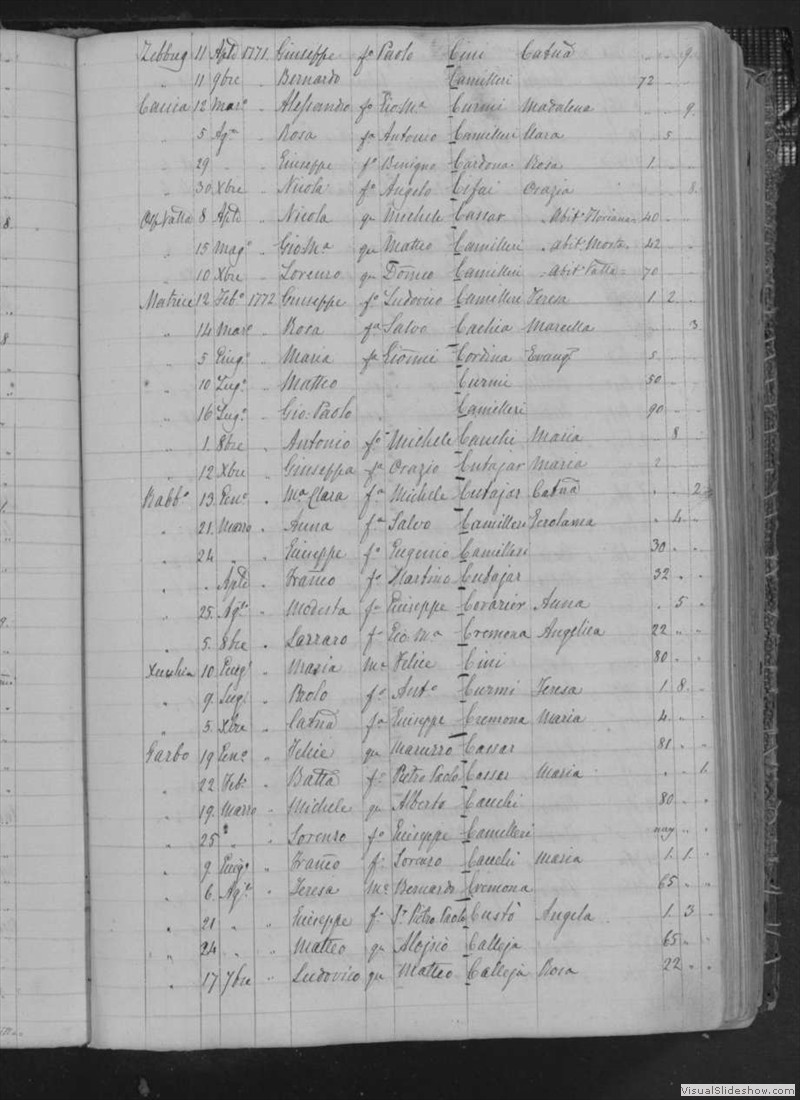 Zebbug 11 Aple 1771 Giuseppe fo Paolo Cini Catna 9
" 11 9bre " Bernardo Camilleri 72
Caccia 12 Maro " Alessandro fo Gio Ma Curmi Madalena 9
" 5 Ago " Rosa fa Antonio Camilleri Clara 5
" 29 " " Giuseppe fo Benigno Cardona Rosa 1
" 30 Xbre " Nicola fo Angelo Cifai Orazia 8
Osp Vatta 8 Aple " Nicola qu Michele Cassar Abite Floriana 40
" 15 Mago " Gio Ma qu Matteo Camilleri abite 42
" 10 Xbre " Lorenzo qu Domco Camilleri abite 70
Matrice 12 Febo 1772 Giuseppe fo Ludovico Camilleri Teresa 1 2
" 14 Maro " Rosa fa Salvo Cachia Marcella 3
" 5 Giugo " Maria fa Gionni Cordina Evangta 5
" 10 Lugo " Matteo Curmi 50
" 16 Lugo " Gio. Paolo Camilleri 90
" 1 8bre " Antonio fo Michele Cauchi Maria 8
" 12 Xbre " Giuseppa fa Orazio Cutajar Maria 2
Rabbo 13 Geno " Ma Clara fa Michele Cutajar Catna 2
" 21 Marzo " Anna fa Salvo Camilleri Gerolama 4
" 24 " " Giuseppe fo Eugenio Camilleri 30
" " Aple " Franco fo Martino Cutajar 32
" 25 Ago " Modesta fa Giuseppe Corazier Anna 5
" 5 8bre " Lazzaro fo Gio Ma Cremona Angelica 22
Xeuchia 10 Giugo " Maria Me Felice Cini 80
" 9 Lugo " Paolo fo Anto Curmi Teresa 1 8
" 5 Xbre " Catna fa Giuseppe Cremona Maria 4
Garbo 19 Geno " Felice qu Maruzzo Cassar 81
" 22 Febo " Batta fo Pietro Paolo Cassar Maria 1
" 19 Marzo " Michele qu Alberto Cauchi 80
" 25 " " Lorenzo fo Giuseppe Camilleri
" 9 Giugo " Franco fo Lorenzo Cauchi Maria 1 1
" 6 Ago " Teresa Me Bernardo Cremona 65
" 21 " " Giuseppe fo Pietro Paolo Custo Angela 1 3
" 24 " " Matteo qu Aloysio Calleja 65
" 17 7bre " Ludovico qu Matteo Calleja Rosa 22
VisualSlideshow.com